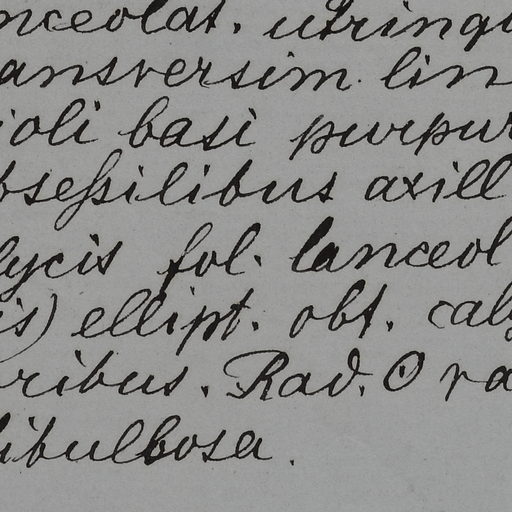 nceolat. utrinqu
ansversim lin
ioli basi purpur
bsessilibus axill
lycis fol. lanceol
is) ellipt. obt. caly
oribus. Rad. ⊙ ra
libulbosa.